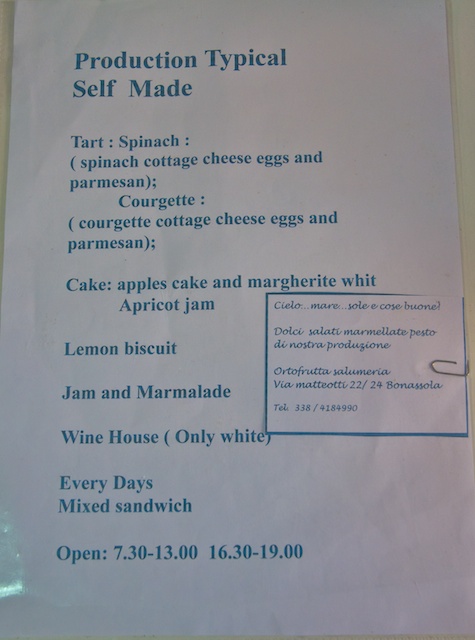 Production Typical
Self Made
Tart : Spinach :
( spinach cottage cheese eggs and
parmesan);
Courgette :
( courgette cottage cheese eggs and
parmesan);
Cake: apples cake and margherite whit
Apricot jam
Lemon biscuit
Jam and Marmalade
Wine House ( Only white)
Every Days
Mixed sandwich
Open: 7.30-13.00 16.30-19.00
Cielo...mare...sole e cose buone?
Dolci salati marmellate pesto
di nostra produzione
Ortofrutta salumeria
Via matteotti 22/ 24 Bonassola
Tel. 338 / 4184990